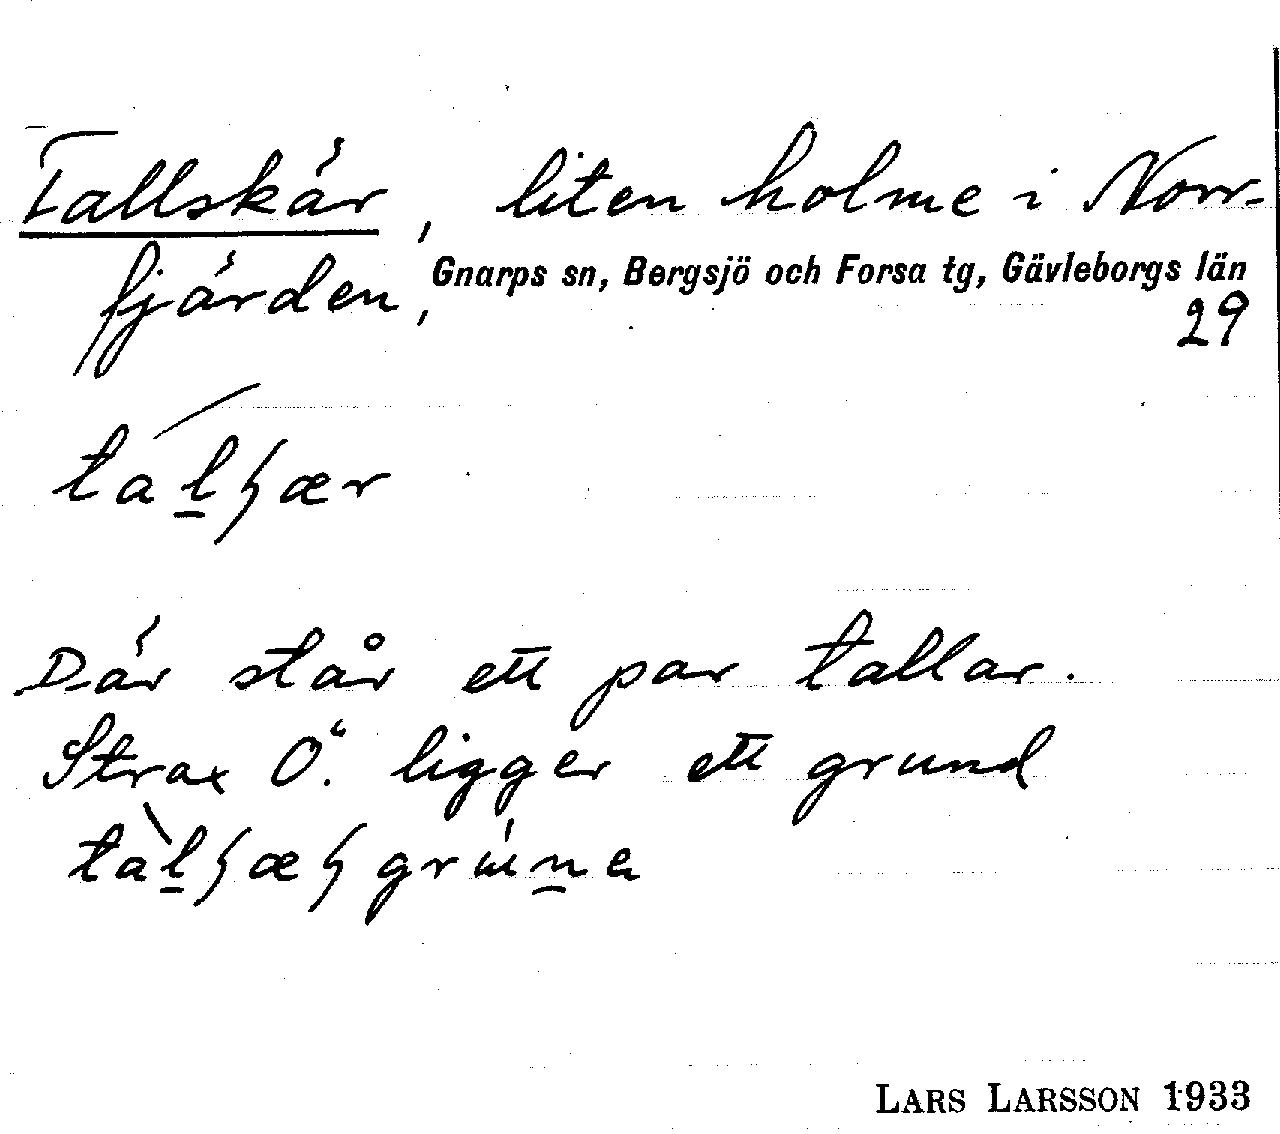 Tallskär, liten holme i Norr-
fjärden, Gnarps sn, Bergsjö och Forsa tg, Gävleborgs län
29
Där står ett par tallar.
Strax Ö. ligger ett grund
LARS LARSSON 1933